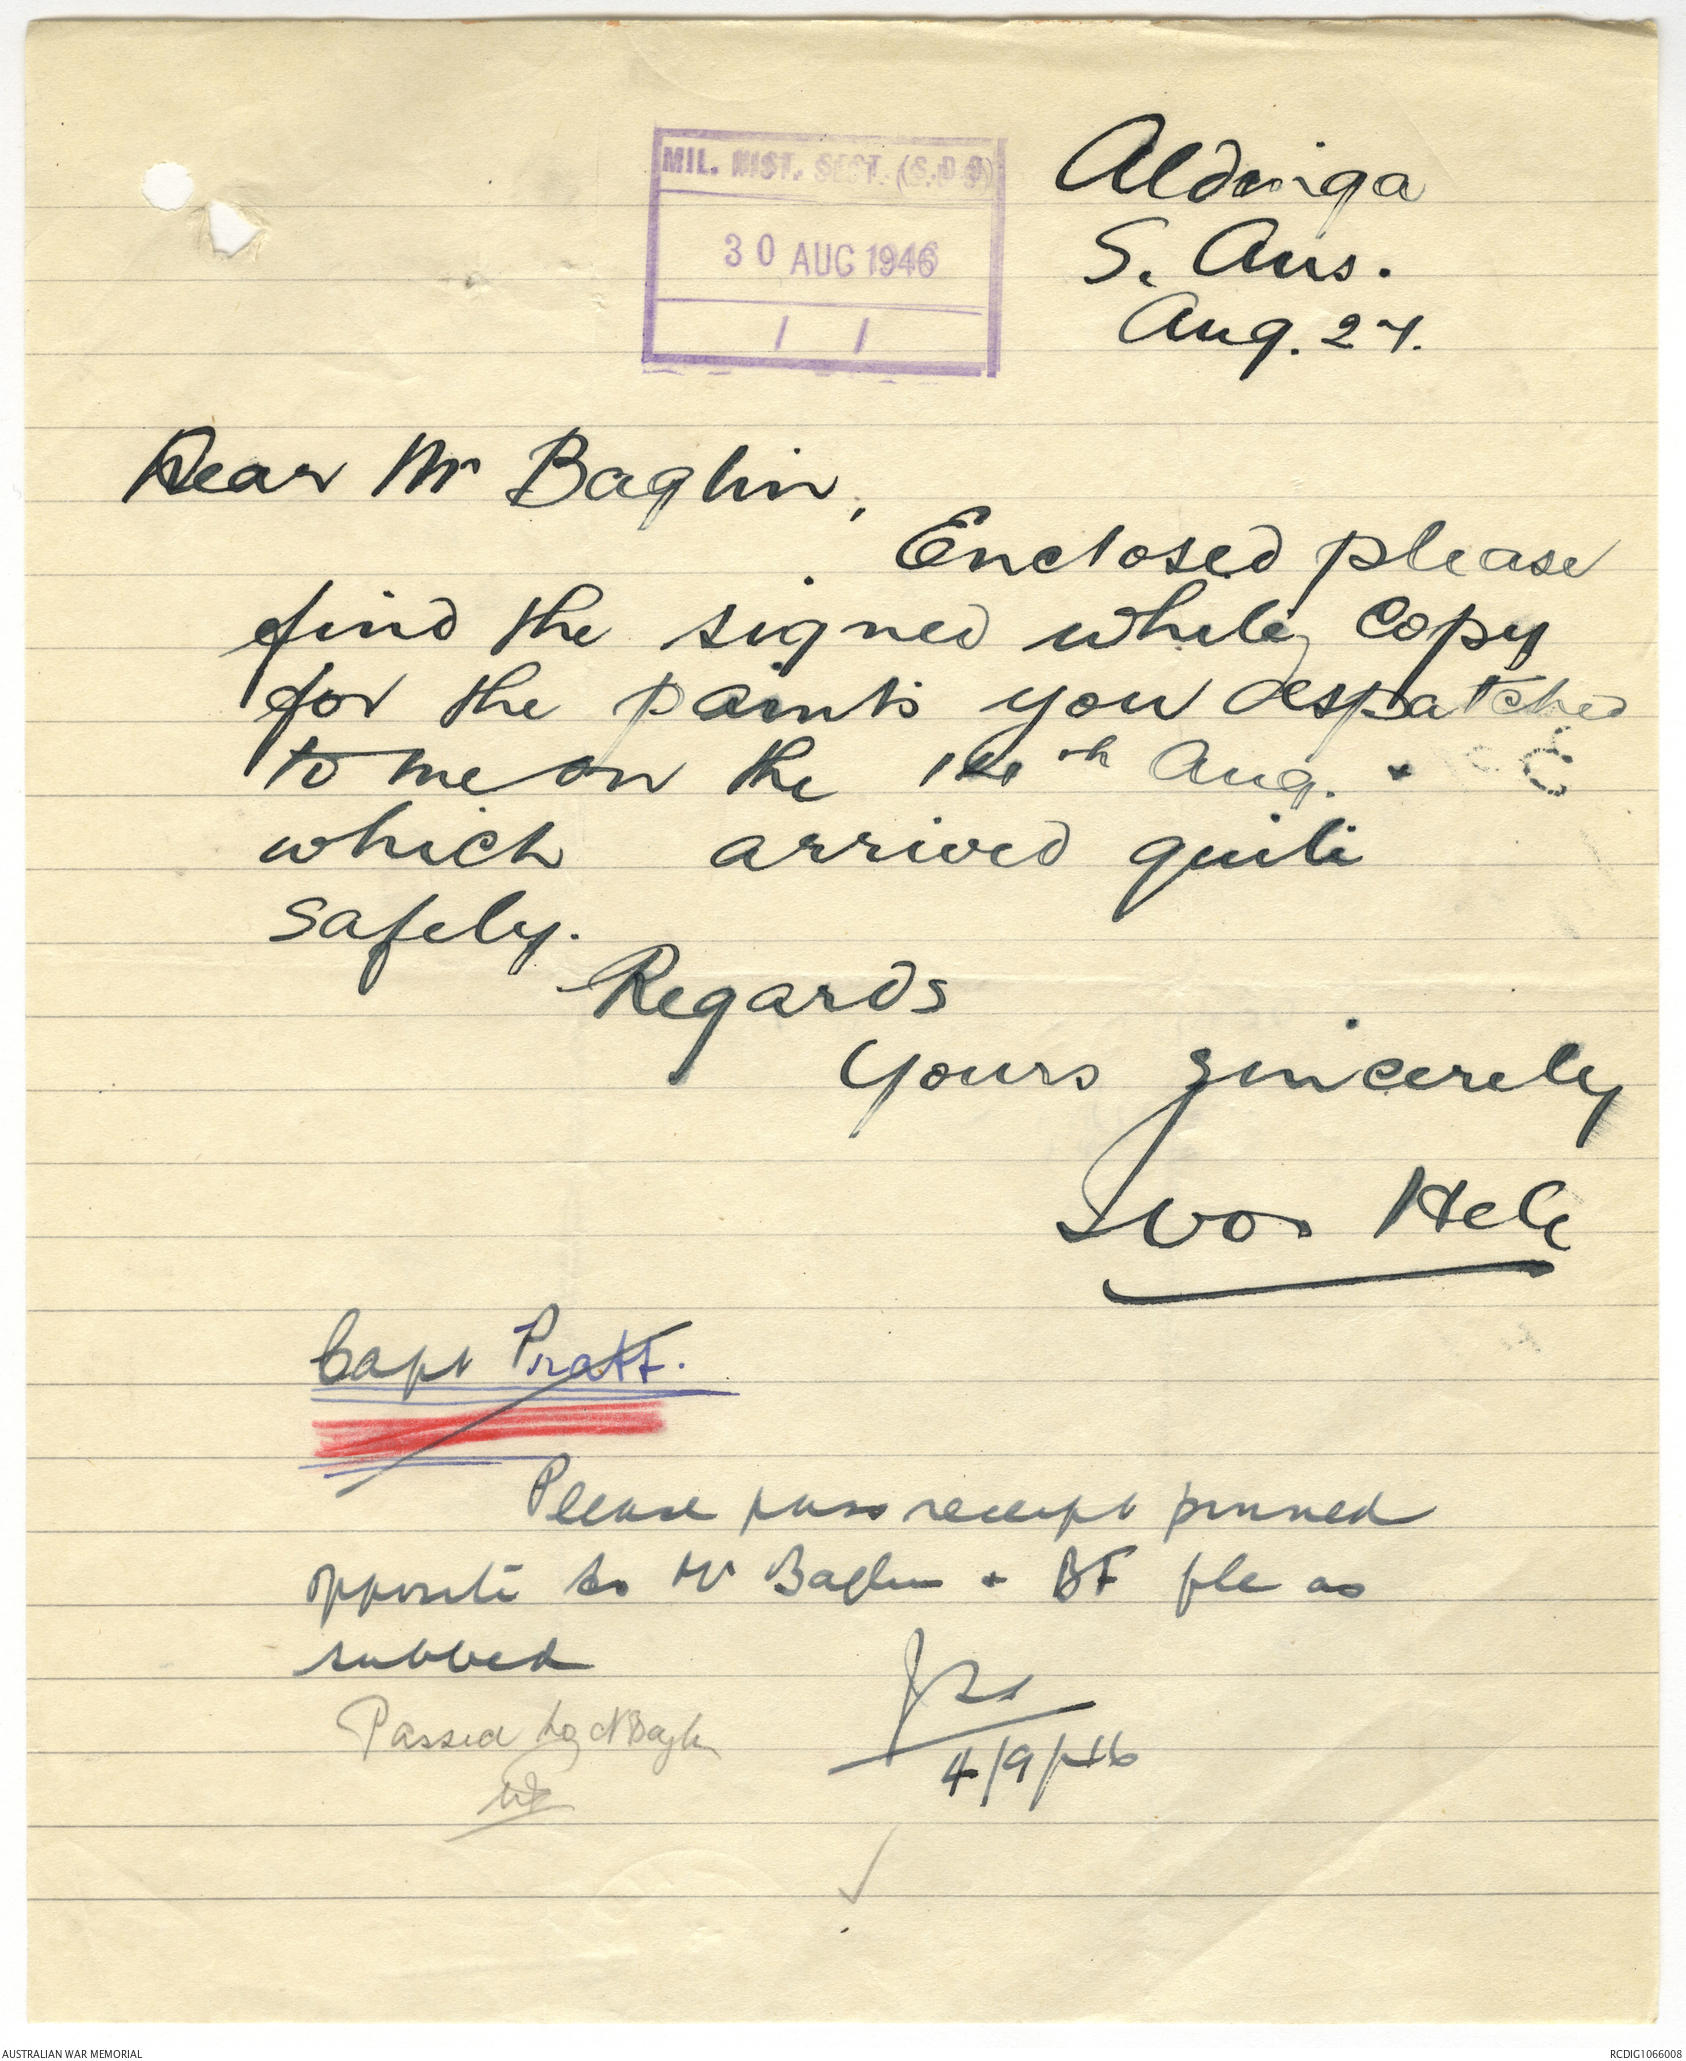 MIL. HIST. SECT. (S.D.9)
30 AUG 1946
/ /
Aldinga
S. Aus.
Aug. 27.
Dear Mr Baglin,
Enclosed please
find the signed white copy
for the paints you despatched
to me on the 14th Aug. +
which arrived quite
safely.
Regards
Yours sincerely
Ivor Hele
Capt Pratt.
Please pass receipt pinned
opposite to Mr Baglin + BF file as
subbed
Passed to Mr Baglin
4/9/46
AUSTRALIAN WAR MEMORIAL
RCDIG1066008